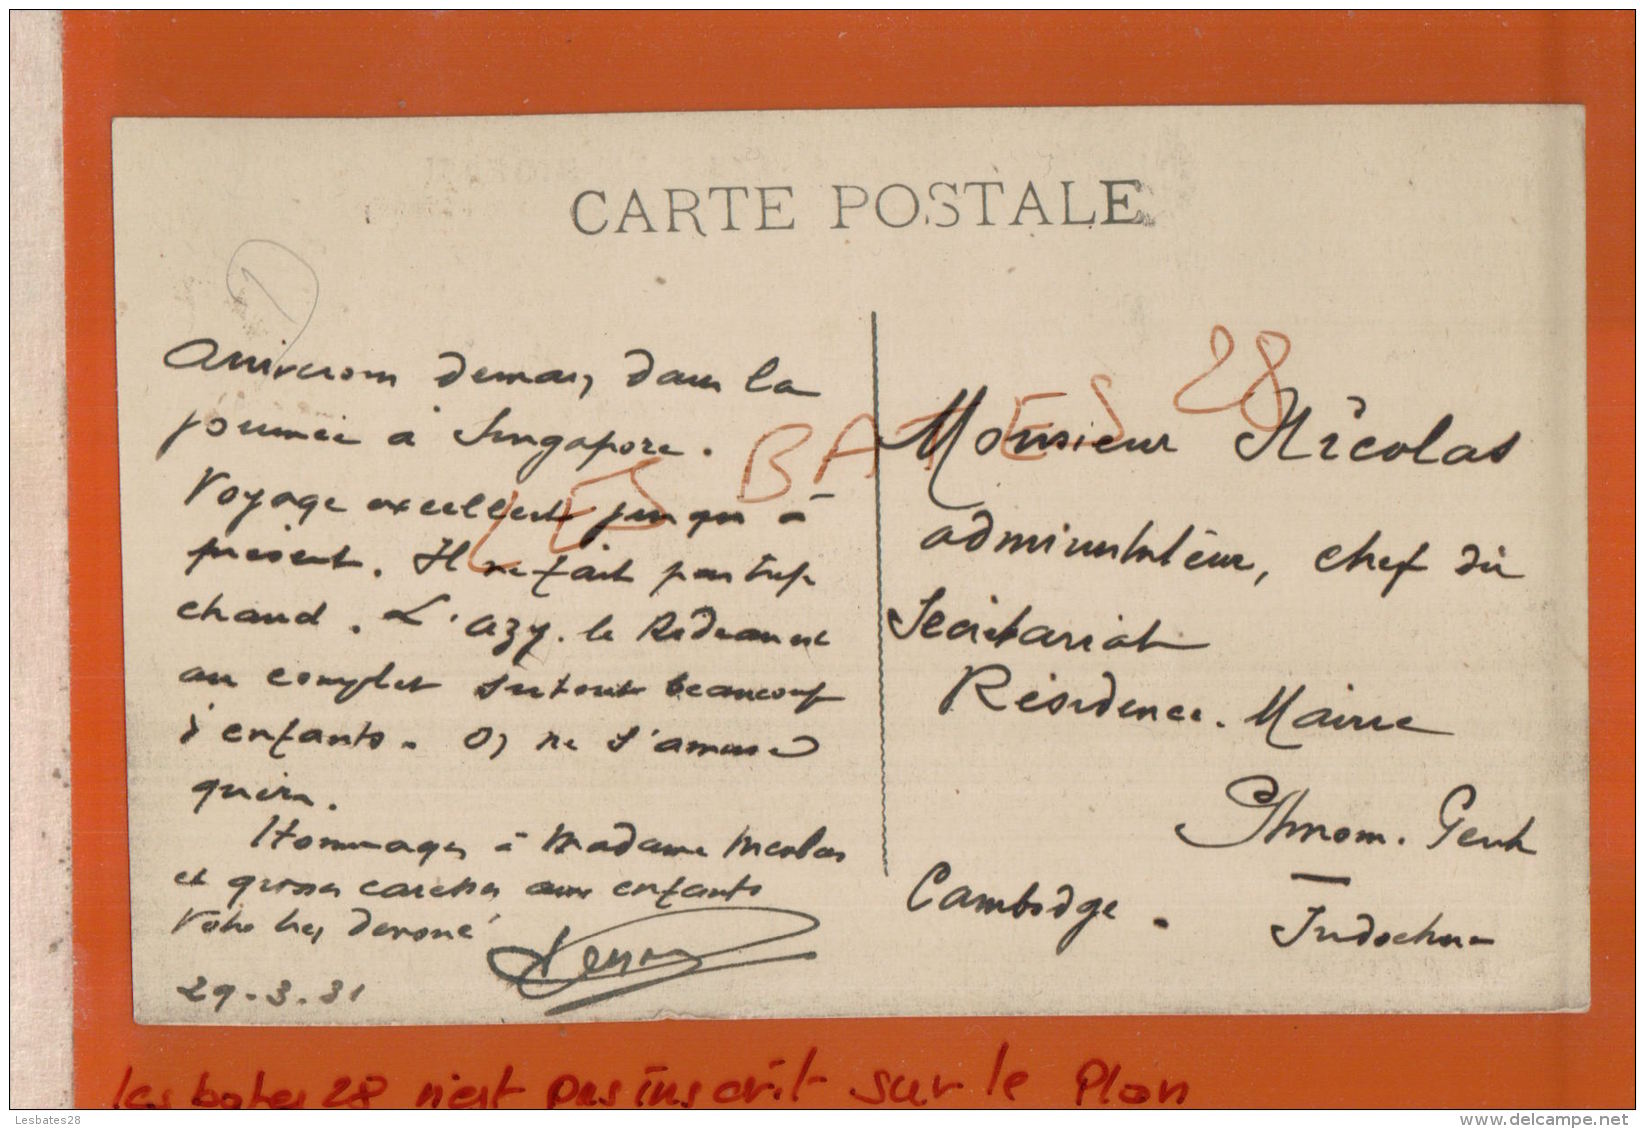 CARTE POSTALE
1
Arriverons demain dans la
journée à Singapore.
Voyage excellent jusqu'à
présent. Il ne fait pas trop
chaud. L'azy. le
au complet surtout beaucoup
d'enfants. On ne s'amuse
guère.
Hommages à Madame Nicolas
et grosses caresses aux enfants
Votre très dévoué
29-3-31
LES BATES 28
Monsieur Nicolas
administrateur, chef du
Secrétariat
Résidence. Mairie
Phnom. Penh
Cambodge.
Indochine
Les bates 28 n'est pas inscrit sur le Plan
Lesbates28
www.delcampe.net